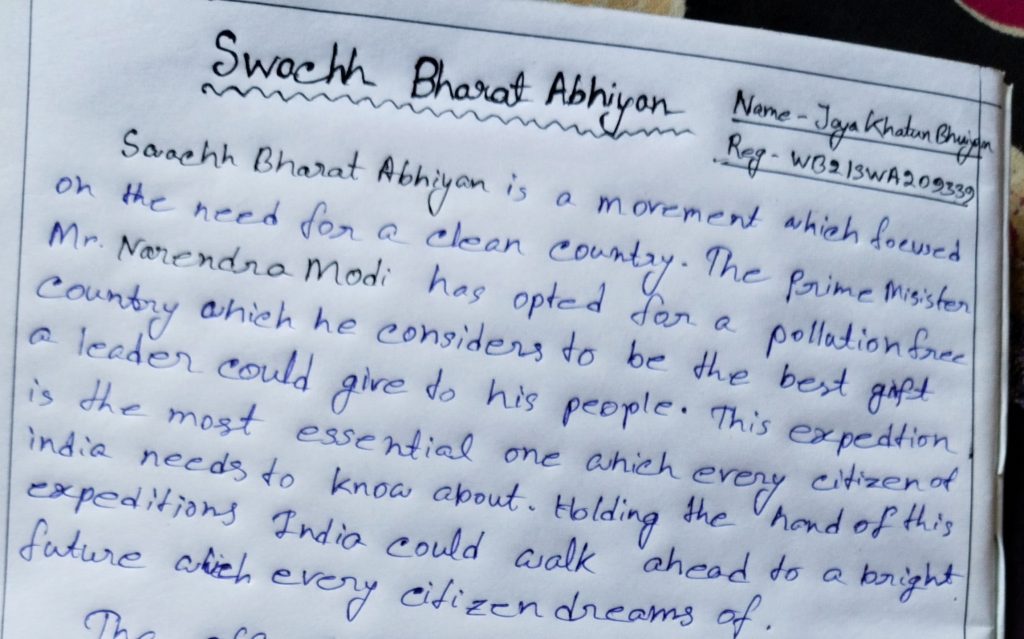 Swachh Bharat Abhiyan
Name - Jaya Khatun Bhuiyan
Reg - WB21SWA209339
Swachh Bharat Abhiyan is a movement which focused
on the need for a clean country. The Prime Misister
Mr. Narendra Modi has opted for a pollution free
Country which he considers to be the best gift
a leader could give to his people. This expedtion
is the most essential one which every citizen of
india needs to know about. Holding the hand of this
expeditions India could walk ahead to a bright
future which every citizen dreams of.
The